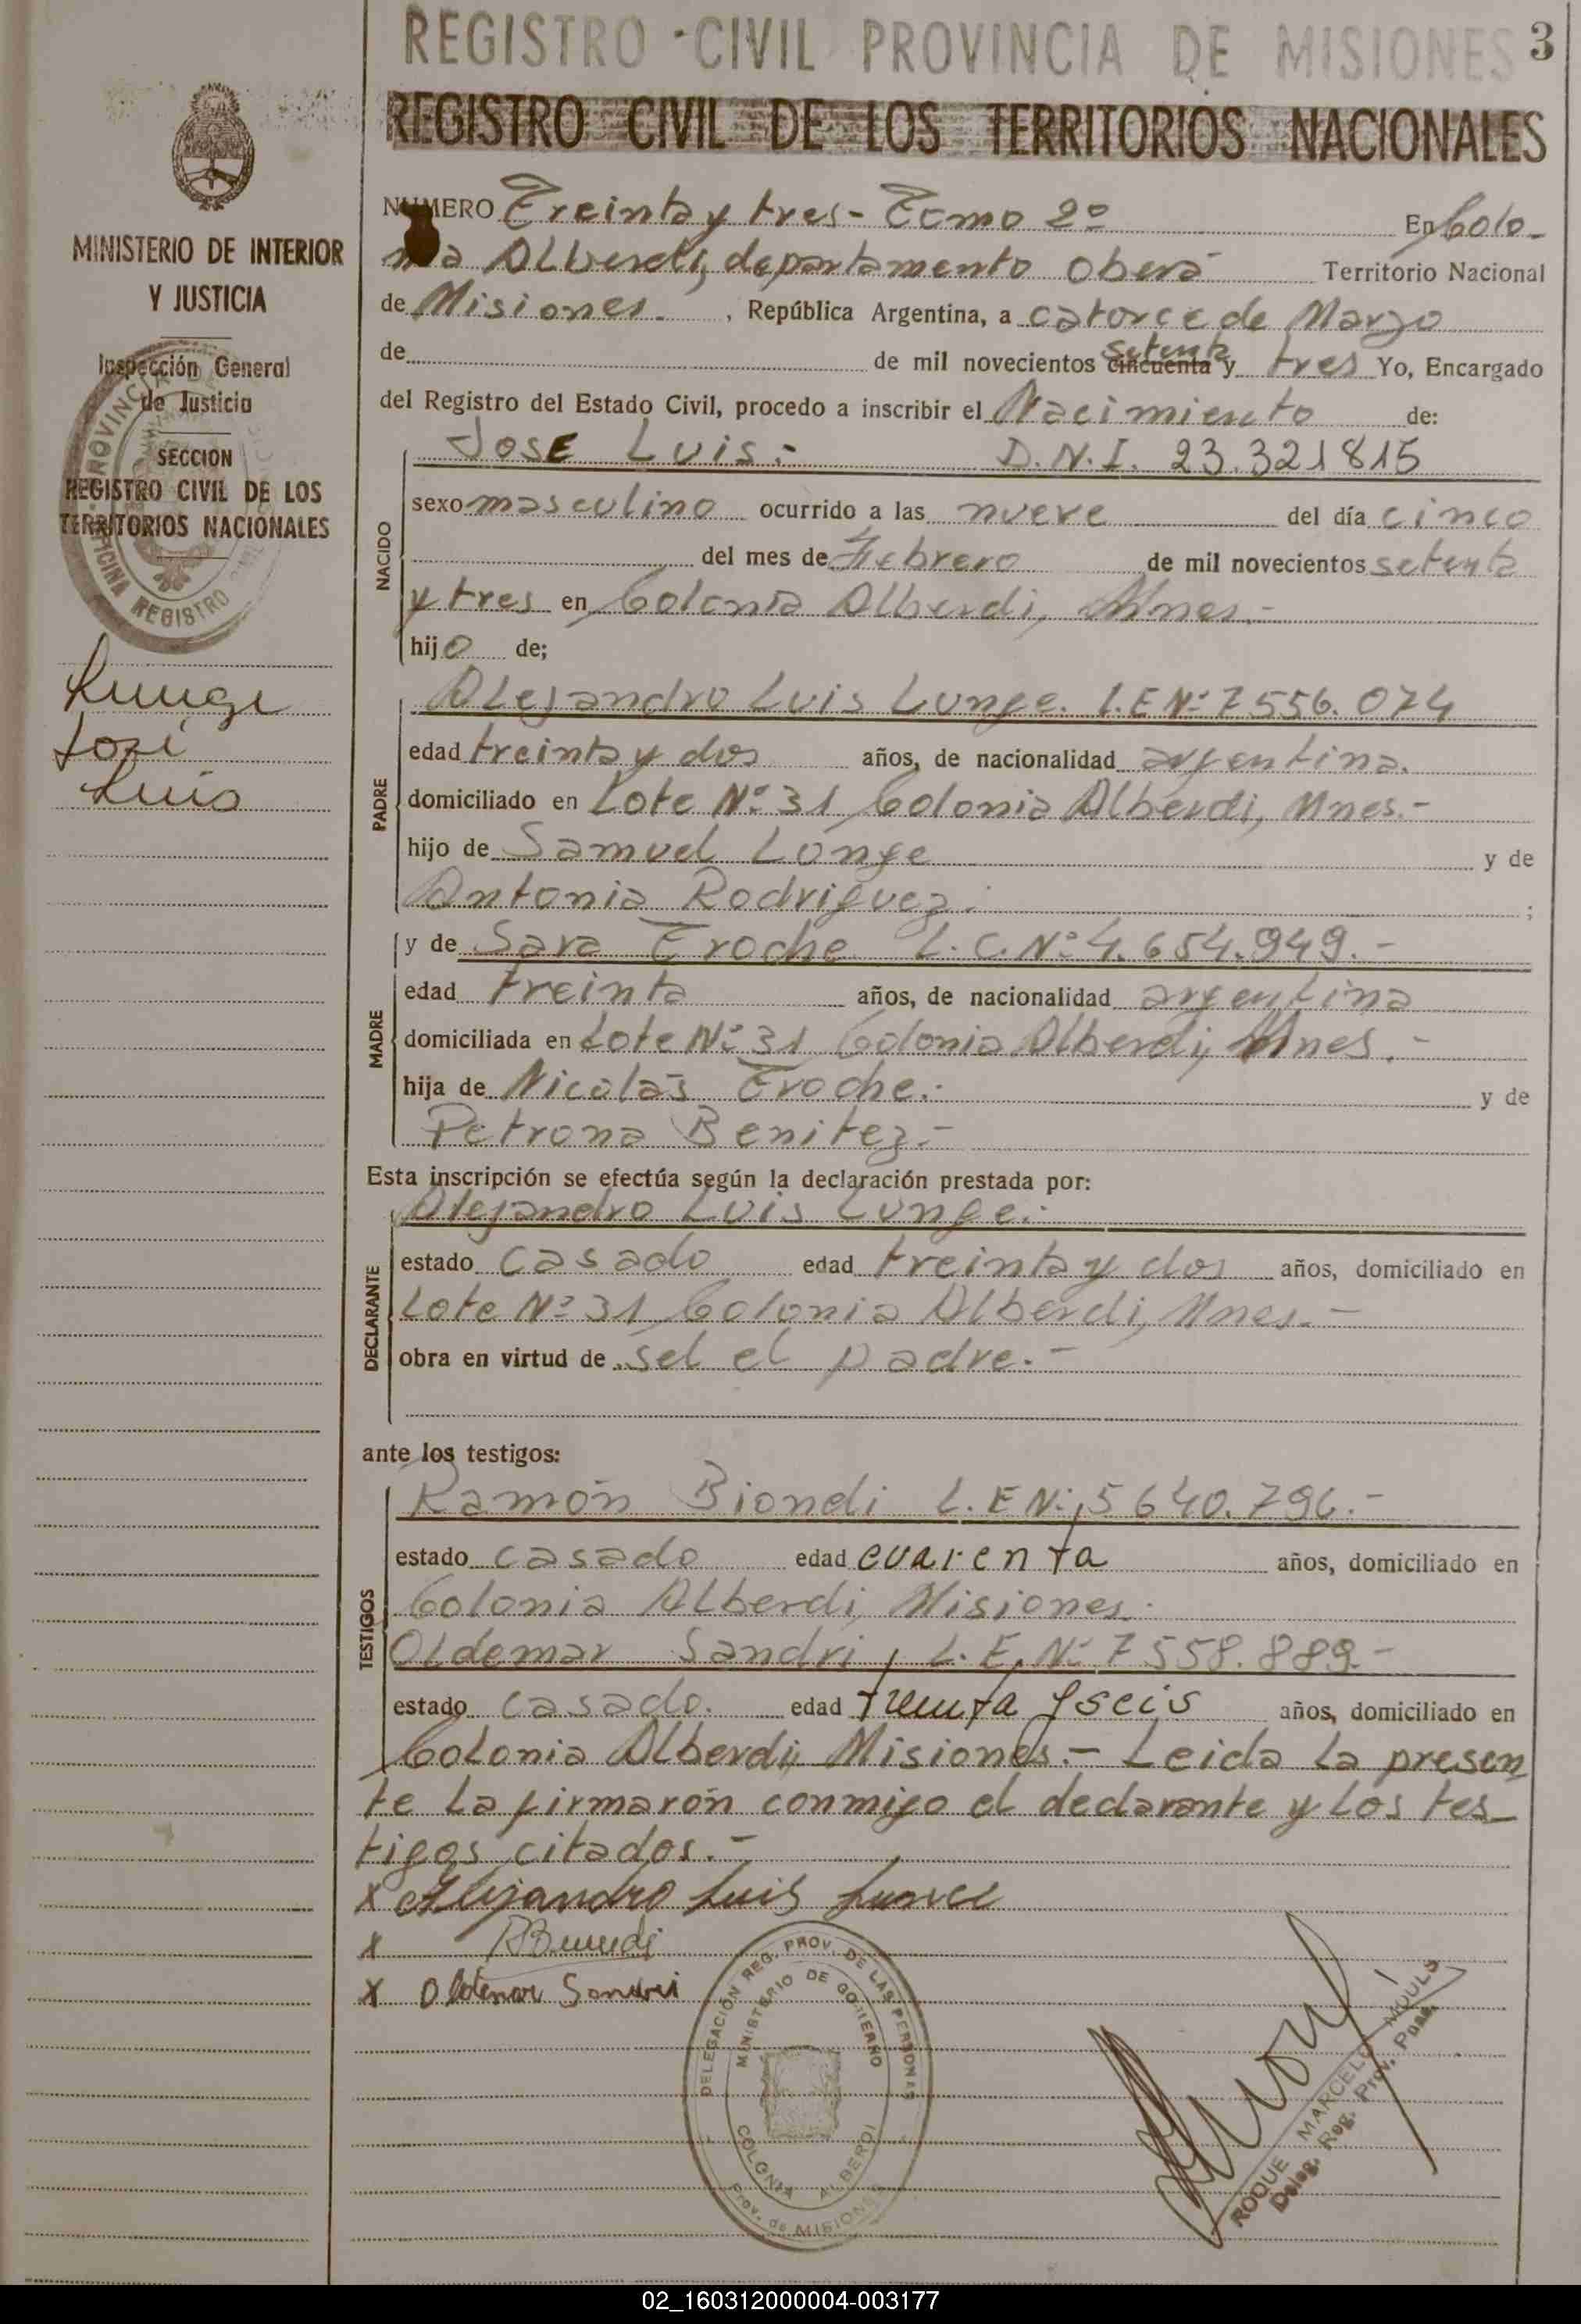 REGISTRO CIVIL PROVINCIA DE MISIONES 3
REGISTRO CIVIL DE LOS TERRITORIOS NACIONALES
MINISTERIO DE INTERIOR
Y JUSTICIA
Inspección General
de Justicia
SECCION
REGISTRO CIVIL DE LOS
TERRITORIOS NACIONALES
PROVINCIA DE
OFICINA REGISTRO
Lunge
José
Luis
NUMERO Treinta y tres - Tomo 2º En Colo-
nia Alberdi, departamento Oberá Territorio Nacional
de Misiones. , República Argentina, a catorce de Marzo
de de mil novecientos cincuenta setenta y tres Yo, Encargado
del Registro del Estado Civil, procedo a inscribir el Nacimiento de:
NACIDO
JOSE Luis.- D.N.I. 23.321815
sexo masculino ocurrido a las nueve del día cinco
del mes de Febrero de mil novecientos setenta
y tres en Colonia Alberdi, Mnes.-
hijo de;
PADRE
Alejandro Luis Lunge. L.E Nº 7556.074
edad treinta y dos años, de nacionalidad argentina.
domiciliado en Lote Nº 31 Colonia Alberdi, Mnes.-
hijo de Samuel Lunge y de
Antonia Rodriguez. ;
MADRE
y de Sara Troche L.C. Nº 4.654.949.-
edad treinta años, de nacionalidad argentina
domiciliada en Lote Nº 31 Colonia Alberdi, Mnes.-
hija de Nicolás Troche. y de
Petrona Benitez.-
Esta inscripción se efectúa según la declaración prestada por:
DECLARANTE
Alejandro Luis Lunge.
estado casado edad treinta y dos años, domiciliado en
Lote Nº 31 Colonia Alberdi, Mnes.-
obra en virtud de sel el padre.-
ante los testigos:
TESTIGOS
Ramón Biondi L.E Nº 5640.796.-
estado casado edad cuarenta años, domiciliado en
Colonia Alberdi, Misiones.
Oldemar Sandri, L.E. Nº 7558.889.-
estado casado. edad treinta y seis años, domiciliado en
Colonia Alberdi, Misiones.- Leida la presen
te la firmarón conmigo el declarante y los tes-
tigos citados.-
x Alejandro Luis Lunge
x
x Oldemar Sandri
DELEGACIÓN REG. PROV. DE LAS PERSONAS
MINISTERIO DE GOBIERNO
COLONIA ALBERDI
Prov. de MISIONES
ROQUE MARCELO MOULS
Deleg. Reg. Prov. Pnas.
02_160312000004-003177